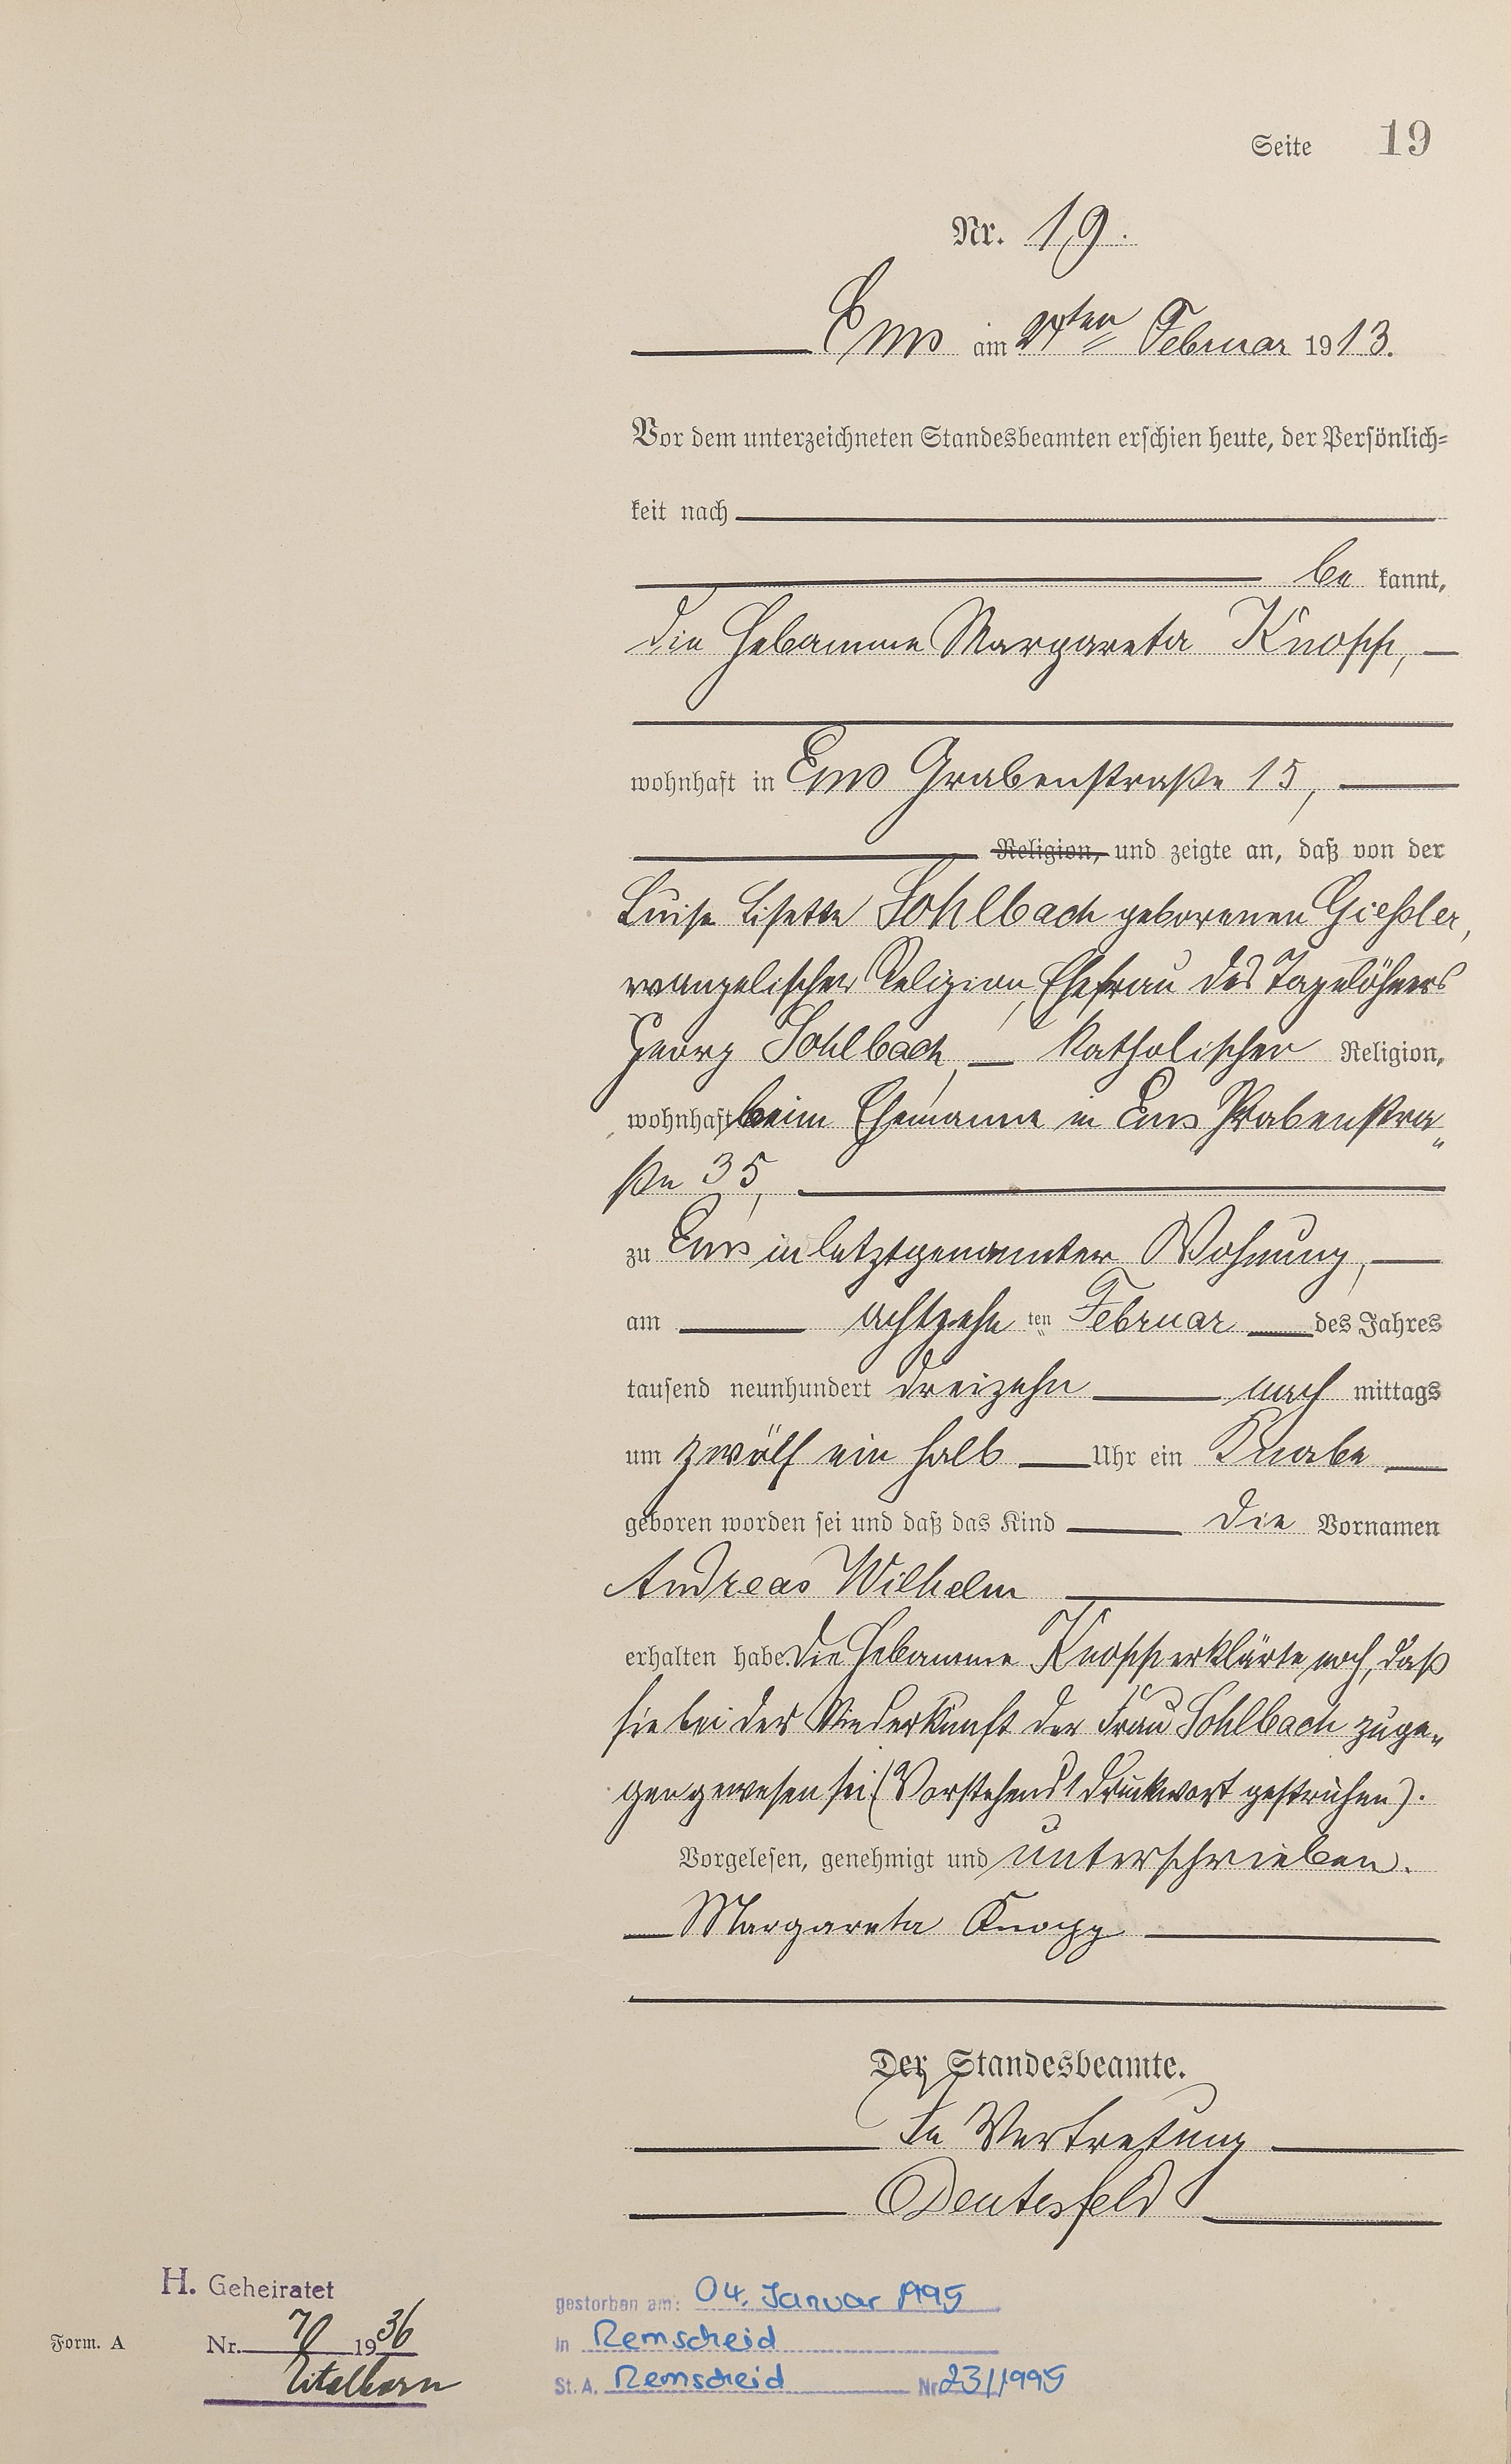 Seite 19
Nr. 19.
Ems am ten Februar 1913.
Vor dem unterzeichneten Standesbeamten erschien heute, der Persönlich-
keit nach
be kannt,
die Hebamme Margareta Knopp,
wohnhaft in Ems Grabenstraße 15,
Religion, und zeigte an, daß von der
Luise Lisette Sohlbach geborenen Gießler,
evangelischer Religion, Ehefrau des Tagelöhners
Georg Sohlbach, katholischer Religion,
wohnhaft beim Ehemanne in Ems Grabenstra-
ße 35,
zu Ems in letztgenannter Wohnung,
am achtzehn ten Februar des Jahres
tausend neunhundert dreizehn nach mittags
um zwölf ein halb Uhr ein Knabe
geboren worden sei und daß das Kind die Vornamen
Andreas Wilhelm
erhalten habe. Die Hebamme Knopp erklärte noch, daß
sie bei der Niederkunft der Frau Sohlbach zuge-
gen gewesen sei. (Vorstehend 1 Druckwort gestrichen).
Vorgelesen, genehmigt und unterschrieben.
Margareta Knopp
Der Standesbeamte.
In Vertretung
Deutesfeld
H. Geheiratet
Nr. 70 1936
Eitelborn
Form. A
gestorben am: 04. Januar 1995
in Remscheid
St. A. Remscheid Nr 23/1995